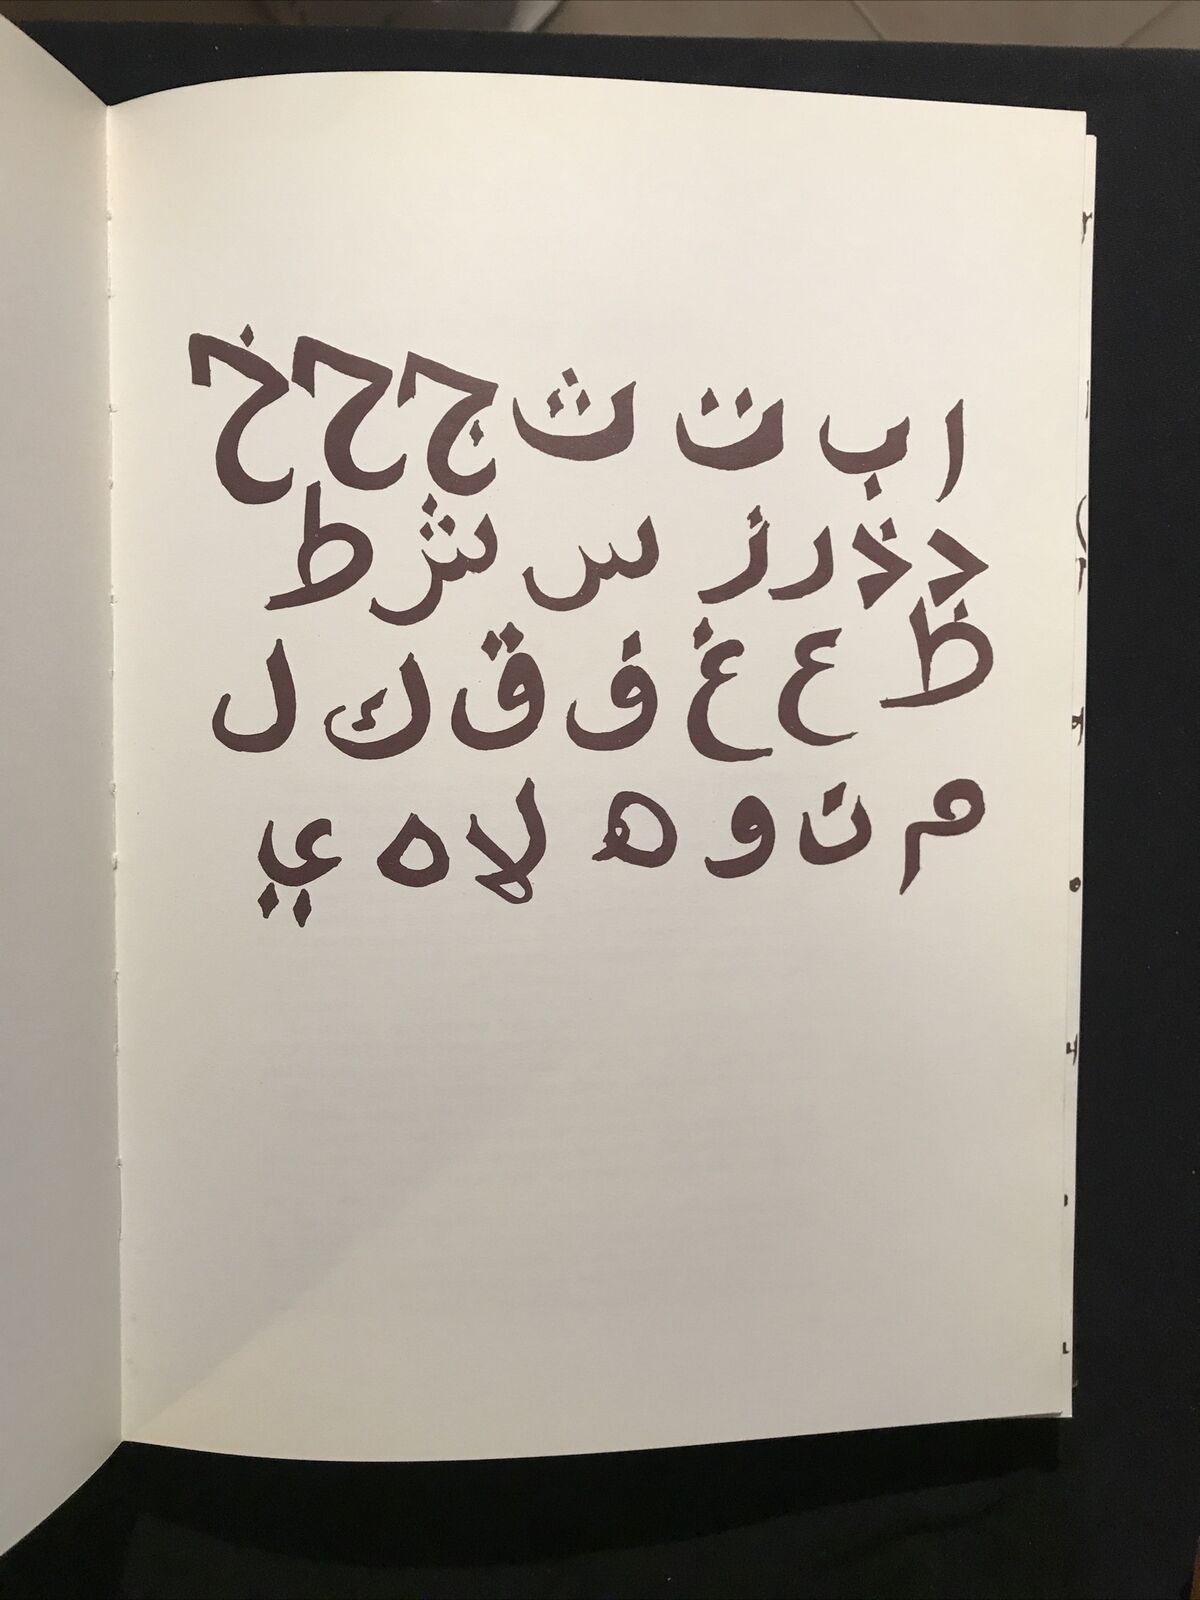 ا ب ت ث ج ح خ
د ذ ر ز س ش ط
ظ ع غ ف ق ك ل
م ن و ه لا ه ي